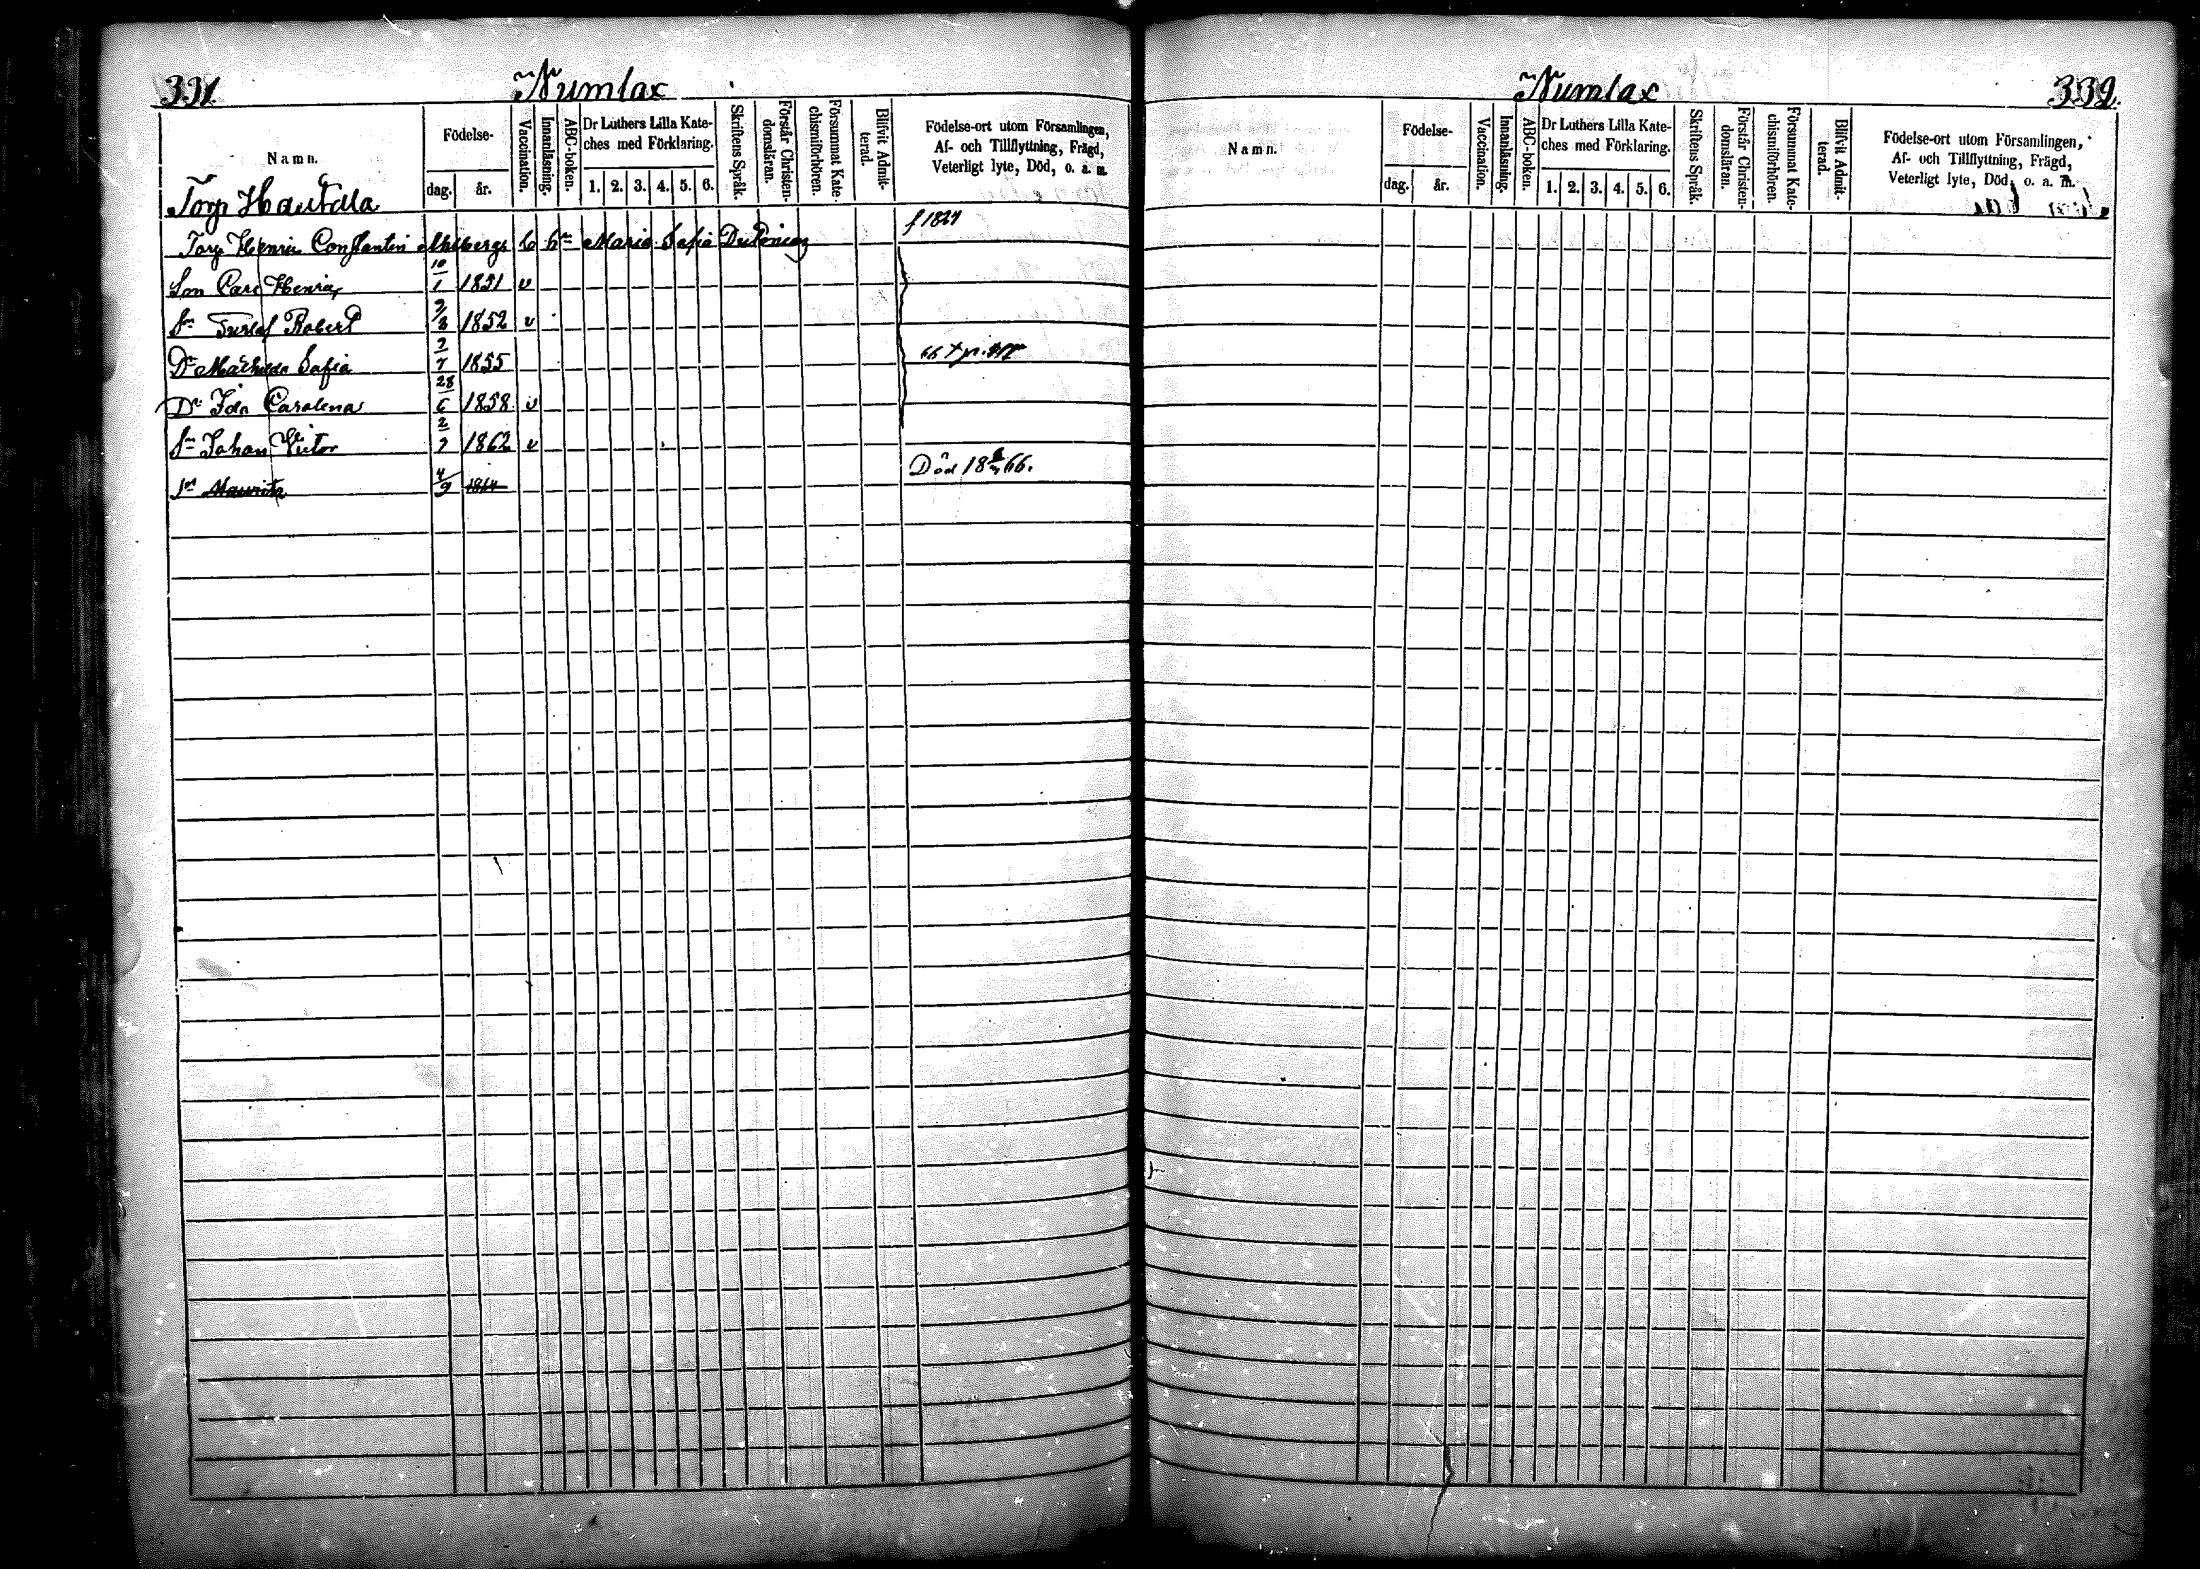 331.
Numlax
Namn.
Födelse-
dag.
år.
Vaccination.
Innanläsning.
ABC-boken.
Dr Luthers Lilla Kate-
ches med Förklaring.
1. 2. 3. 4. 5. 6.
Skriftens Språk.
Förstår Christen-
domsläran.
Försummat Kate-
chismiförhören.
Blifvit Admit-
terad.
Födelse-ort utom Församlingen,
Af- och Tillflyttning, Frägd,
Veterligt lyte, Död, o. a. m.
Torp Hautala
Torp Henric Constantin Maria Sofia
Son Carl Henric 10/1 1851 v
Sn Gustaf Robert 1852 v
Dr Mathilda Sofia 2/7 1855
Dr Ida Carolina 28/6 1858 v
Sn Johan Victor 2/7 1862 v
Sn Mauritz 4/9 1864 Död 66.
Numlax
332.
Namn.
Födelse-
dag.
år.
Vaccination.
Innanläsning.
ABC-boken.
Dr Luthers Lilla Kate-
ches med Förklaring.
1. 2. 3. 4. 5. 6.
Skriftens Språk.
Förstår Christen-
domsläran.
Försummat Kate-
chismiförhören.
Blifvit Admit-
terad.
Födelse-ort utom Församlingen,
Af- och Tillflyttning, Frägd,
Veterligt lyte, Död, o. a. m.